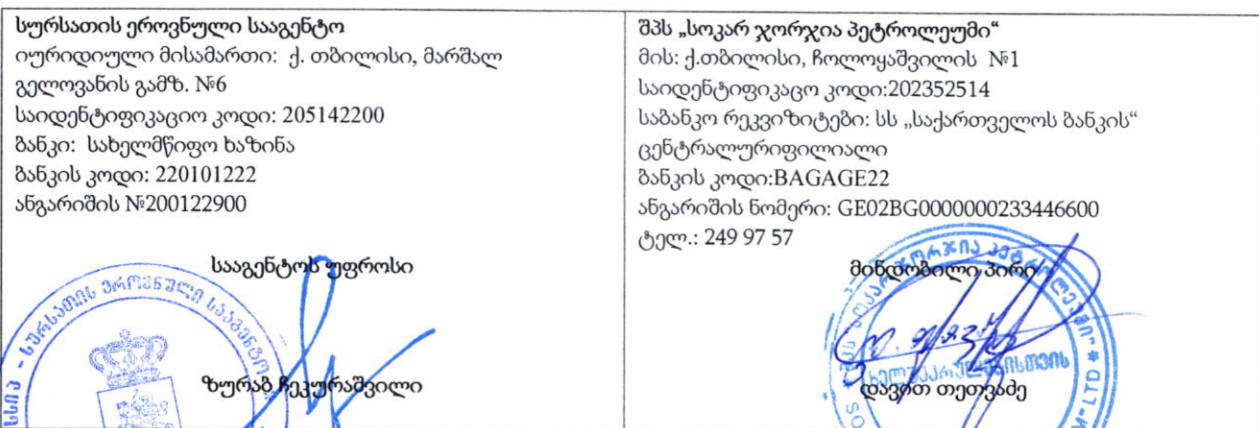 სურსათის ეროვნული სააგენტო
იურიდიული მისამართი: ქ. თბილისი, მარშალ
გელოვანის გამზ. №6
საიდენტიფიკაციო კოდი: 205142200
ბანკი: სახელმწიფო ხაზინა
ბანკის კოდი: 220101222
ანგარიშის №200122900
სააგენტოს უფროსი
სსიპ - სურსათის ეროვნული სააგენტო
ზურაბ ჩეკურაშვილი
შპს „სოკარ ჯორჯია პეტროლეუმი“
მის: ქ.თბილისი, ჩოლოყაშვილის №1
საიდენტიფიკაცო კოდი:202352514
საბანკო რეკვიზიტები: სს „საქართველოს ბანკის“
ცენტრალურიფილიალი
ბანკის კოდი:BAGAGE22
ანგარიშის ნომერი: GE02BG0000000233446600
ტელ.: 249 97 57
მინდობილი პირი
შპს სოკარ ჯორჯია პეტროლეუმი
ხელშეკრულებისთვის
დავით თეთვაძე